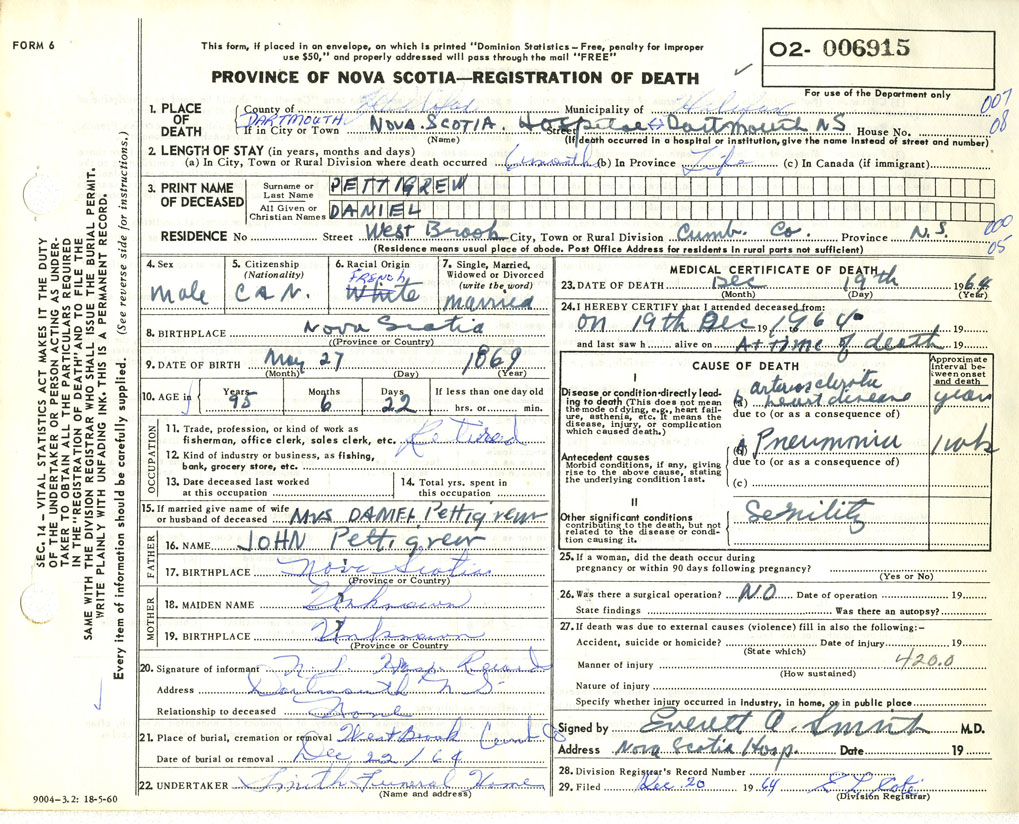 FORM 6
This form, if placed in an envelope, on which is printed "Dominion Statistics – Free, penalty for improper
use $50," and properly addressed will pass through the mail "FREE"
O2- 006915
PROVINCE OF NOVA SCOTIA—REGISTRATION OF DEATH
For use of the Department only
007
08
1. PLACE OF DEATH
County of Municipality of Halifax
DARTMOUTH
If in City or Town NOVA SCOTIA Hospital Street Dartmouth NS House No.
(Name) (If death occurred in a hospital or institution, give the name instead of street and number)
2. LENGTH OF STAY (in years, months and days)
(a) In City, Town or Rural Division where death occurred 1 month (b) In Province Life (c) In Canada (if immigrant)
3. PRINT NAME OF DECEASED
Surname or Last Name PETTIGREW
All Given or Christian Names DANIEL
RESIDENCE No Street West Brook City, Town or Rural Division Cumb. Co. Province N.S.
000
05
(Residence means usual place of abode. Post Office Address for residents in rural parts not sufficient)
4. Sex
male
5. Citizenship
(Nationality)
CAN.
6. Racial Origin
FRENCH
White
7. Single, Married, Widowed or Divorced
(write the word)
married
8. BIRTHPLACE Nova Scotia
(Province or Country)
9. DATE OF BIRTH May 27 1869
(Month) (Day) (Year)
10. AGE in
Years 95
Months 6
Days 22
If less than one day old
hrs. or min.
OCCUPATION
11. Trade, profession, or kind of work as
fisherman, office clerk, sales clerk, etc. Retired
12. Kind of industry or business, as fishing,
bank, grocery store, etc.
13. Date deceased last worked
at this occupation
14. Total yrs. spent in
this occupation
15. If married give name of wife
or husband of deceased Mrs DANIEL Pettigrew
FATHER
16. NAME JOHN Pettigrew
17. BIRTHPLACE Nova Scotia
(Province or Country)
MOTHER
18. MAIDEN NAME Unknown
19. BIRTHPLACE Unknown
(Province or Country)
20. Signature of informant N.S. Hosp. Records
Address Dartmouth NS
Relationship to deceased None
21. Place of burial, cremation or removal West Brook Cumb Co
Date of burial or removal Dec 22/64
22. UNDERTAKER Smith Funeral Home
(Name and address)
9004-3.2: 18-5-60
MEDICAL CERTIFICATE OF DEATH
23. DATE OF DEATH Dec 19th 1964
(Month) (Day) (Year)
24. I HEREBY CERTIFY that I attended deceased from:
on 19th Dec 19 1964 19
and last saw h alive on At time of death 19
CAUSE OF DEATH
Approximate Interval between onset and death
I
Disease or condition directly leading
to death (This does not mean
the mode of dying, e.g., heart failure,
asthenia, etc. It means the
disease, injury, or complication
which caused death.)
arteriosclerotic
heart disease years
due to (or as a consequence of)
Pneumonia 1 wk
Antecedent causes
Morbid conditions, if any, giving
rise to the above cause, stating
the underlying condition last.
due to (or as a consequence of)
(c)
II
Other significant conditions
contributing to the death, but not
related to the disease or condition
causing it.
Senility
25. If a woman, did the death occur during
pregnancy or within 90 days following pregnancy?
(Yes or No)
26. Was there a surgical operation? NO Date of operation 19
State findings Was there an autopsy?
27. If death was due to external causes (violence) fill in also the following:–
Accident, suicide or homicide? Date of injury 19
(State which)
Manner of injury 420.0
(How sustained)
Nature of injury
Specify whether injury occurred in industry, in home, or in public place
Signed by Everett A. Smith M.D.
Address Nova Scotia Hosp. Date 19
28. Division Registrar's Record Number
29. Filed Dec. 20 1964
(Division Registrar)
SEC. 14 – VITAL STATISTICS ACT MAKES IT THE DUTY
OF THE UNDERTAKER OR PERSON ACTING AS UNDER-
TAKER TO OBTAIN ALL THE PARTICULARS REQUIRED
IN THE "REGISTRATION OF DEATH" AND TO FILE THE
SAME WITH THE DIVISION REGISTRAR WHO SHALL ISSUE THE BURIAL PERMIT.
WRITE PLAINLY WITH UNFADING INK. THIS IS A PERMANENT RECORD.
Every item of information should be carefully supplied. (See reverse side for instructions.)